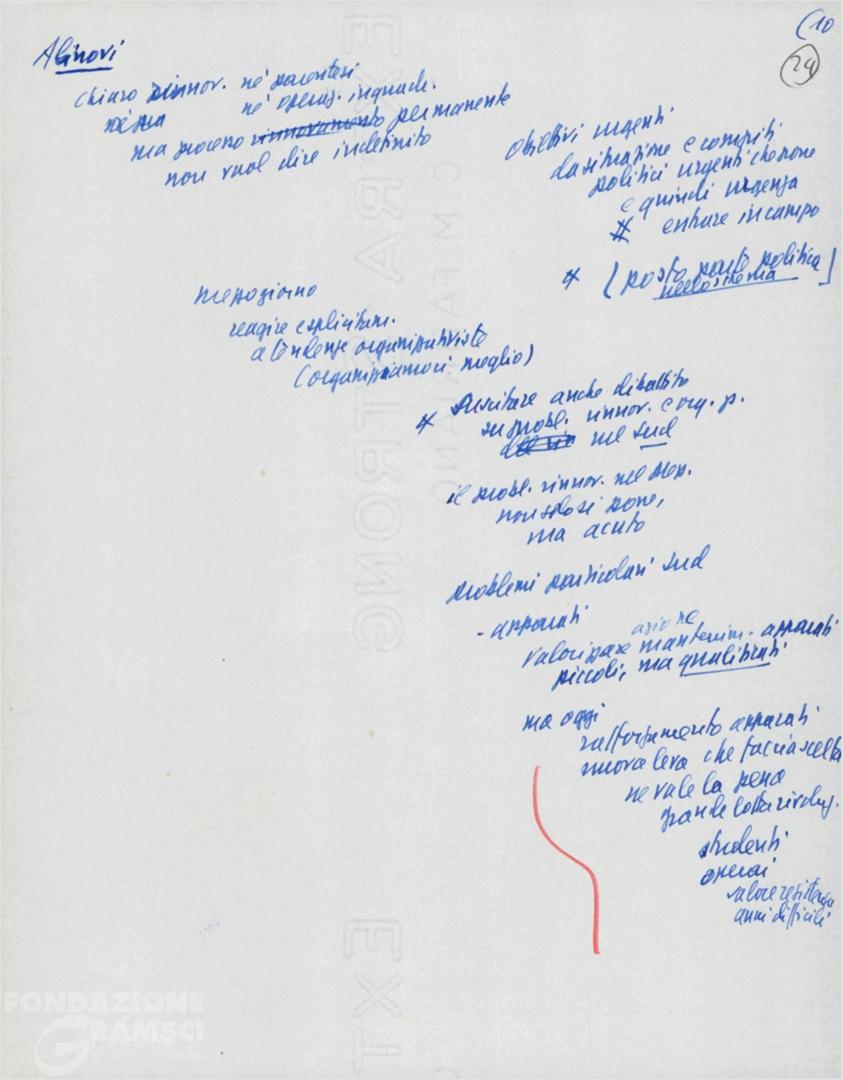 (10
24
Alinovi
chiaro rinnov. né parentesi
né operaz. inquadr.
ma processo rinnovamento permanente
non vuol dire indefinito
obiettivi urgenti
da situazione e compiti
politici urgenti che pone
e quindi urgenza
entrare in campo
* (posta parte politica
nello schema]
Mezzogiorno
reagire esplicitam.
a tendenze organizzativiste
(organizziamoci meglio)
* suscitare anche dibattito
su probl. rinnov. e org. p.
nel sud
il probl. rinnov. nel Mez.
non solo si pone,
ma acuto
problemi particolari sud
- apparati
azione
valorizzare mantenim. apparati
piccoli, ma qualificati
ma oggi
rafforzamento apparati
nuova leva che faccia scelta
ne vale la pena
grande lotta rivoluz.
studenti
operai
valore resistenza
anni difficili
EXTRA STRONG
EXT
FONDAZIONE
GRAMSCI